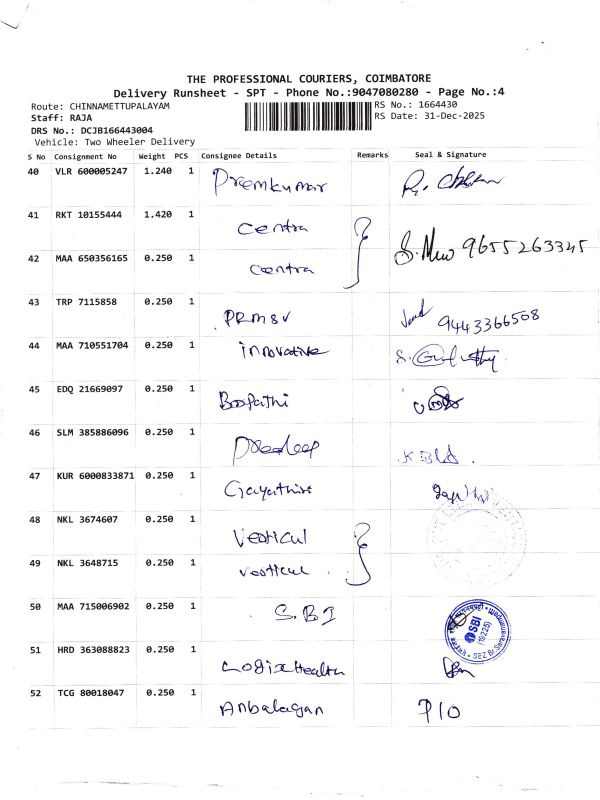 THE PROFESSIONAL COURIERS, COIMBATORE
Delivery Runsheet - SPT - Phone No.:9047080280 - Page No.:4
Route: CHINNAMETTUPALAYAM RS No.: 1664430
Staff: RAJA RS Date: 31-Dec-2025
DRS No.: DCJB166443004
Vehicle: Two Wheeler Delivery
S No Consignment No Weight PCS Consignee Details Remarks Seal & Signature
40 VLR 600005247 1.240 1 Premkumar
41 RKT 10155444 1.420 1 Centra
S. 9655263345
42 MAA 650356165 0.250 1 Centra
43 TRP 7115858 0.250 1 PRMSV 9443366508
44 MAA 710551704 0.250 1 innovative
45 EDQ 21669097 0.250 1 Boopathi
46 SLM 385886096 0.250 1 Predeep
47 KUR 6000833871 0.250 1 Gayathiri
48 NKL 3674607 0.250 1 Vertical
49 NKL 3648715 0.250 1 vertical
50 MAA 715006902 0.250 1 S.B.I SBI
51 HRD 363088823 0.250 1 LogixHealth
52 TCG 80018047 0.250 1 Anbalagan P10